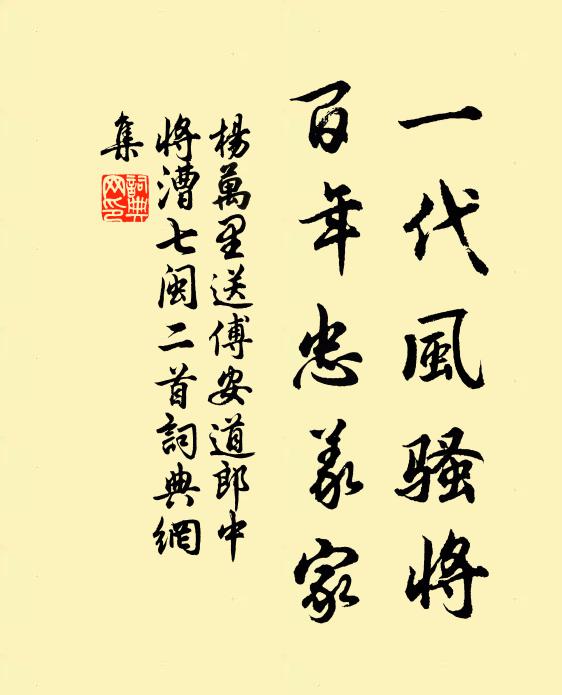 一代風騷將
百年忠義家
楊萬里送傅安道郎中
將漕七閩二首詞典網
集
詞典
网印